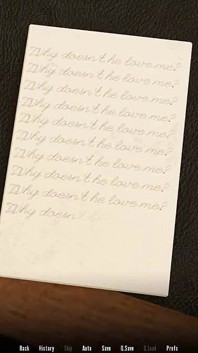 Why doesn't he love me?
Why doesn't he love me?
Why doesn't he love me?
Why doesn't he love me?
Why doesn't he love me?
Why doesn't he love me?
Why doesn't he love me?
Why doesn't he love me?
Why doesn't he love me?
Why doesn
Back History Skip Auto Save Q.Save Q.Load Prefs